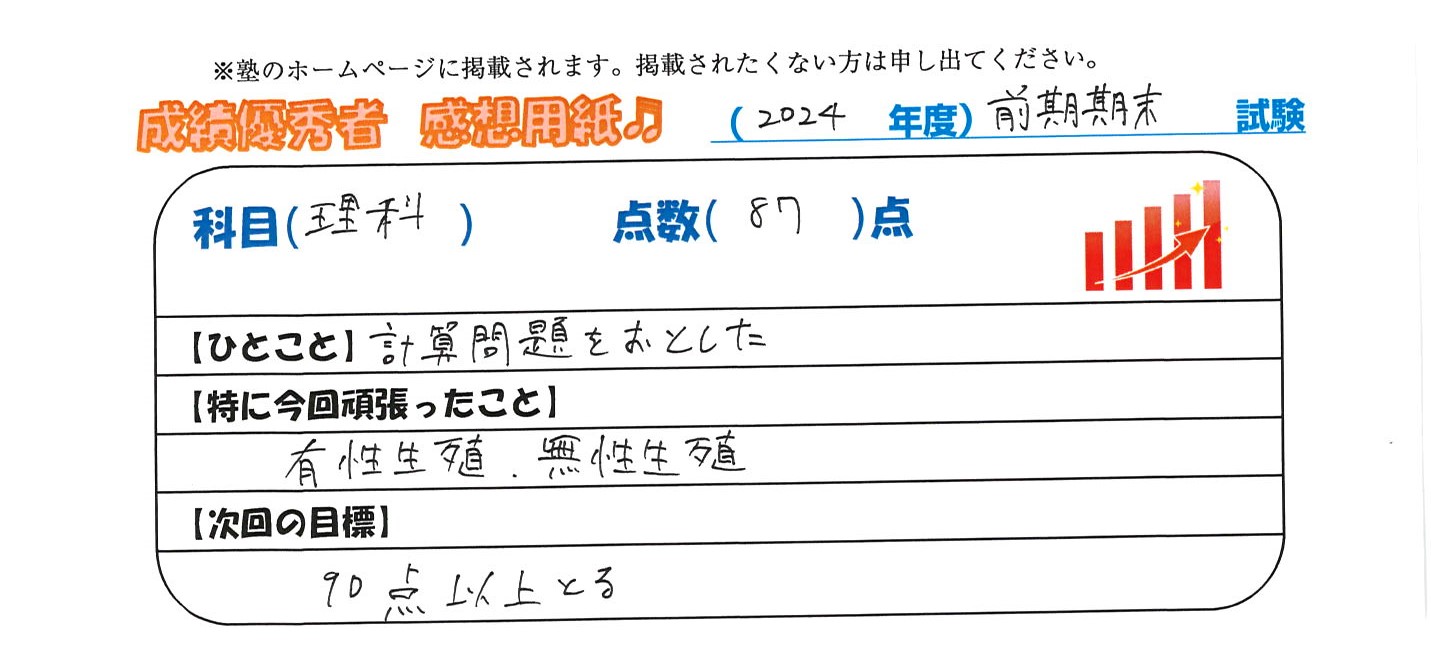 ※塾のホームページに掲載されます。掲載されたくない方は申し出てください。
成績優秀者 感想用紙♫ (2024 年度)前期期末 試験
科目(理科 ) 点数( 87 )点
【ひとこと】計算問題をおとした
【特に今回頑張ったこと】
有性生殖.無性生殖
【次回の目標】
90点以上とる